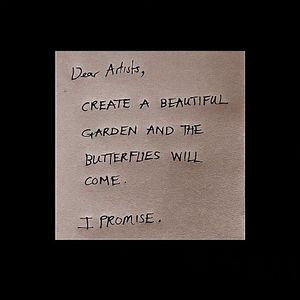 Dear Artists,
CREATE A BEAUTIFUL
GARDEN AND THE
BUTTERFLIES WILL
COME.
I PROMISE.